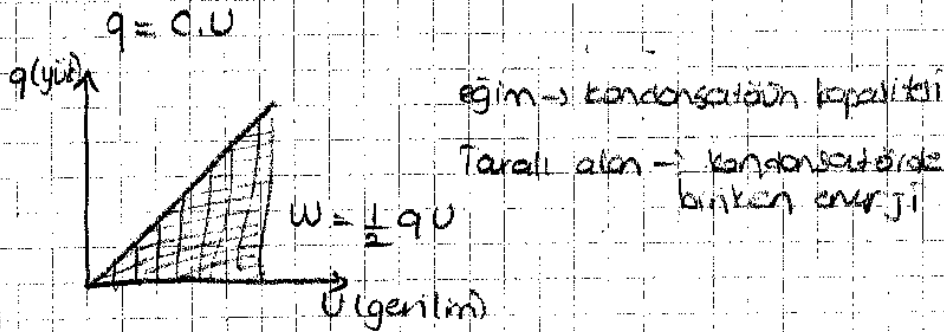 q = C.U
q(yük)
eğim → kondansatörün kapasitesi
Taralı alan → kondansatörde
biriken enerji
W = 1/2 qU
U (gerilim)